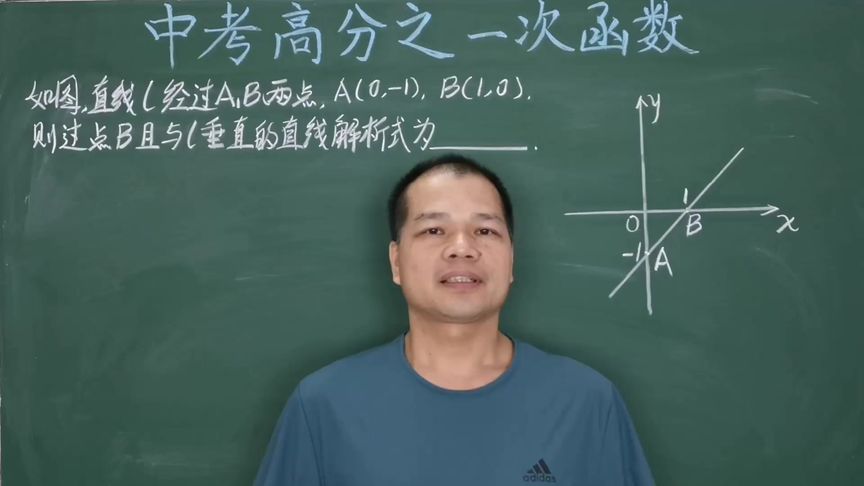 中考高分之一次函数
如图,直线l经过A,B两点,A(0,-1),B(1,0),
则过点B且与l垂直的直线解析式为______.
y
1
0
B
x
-1
A
adidas